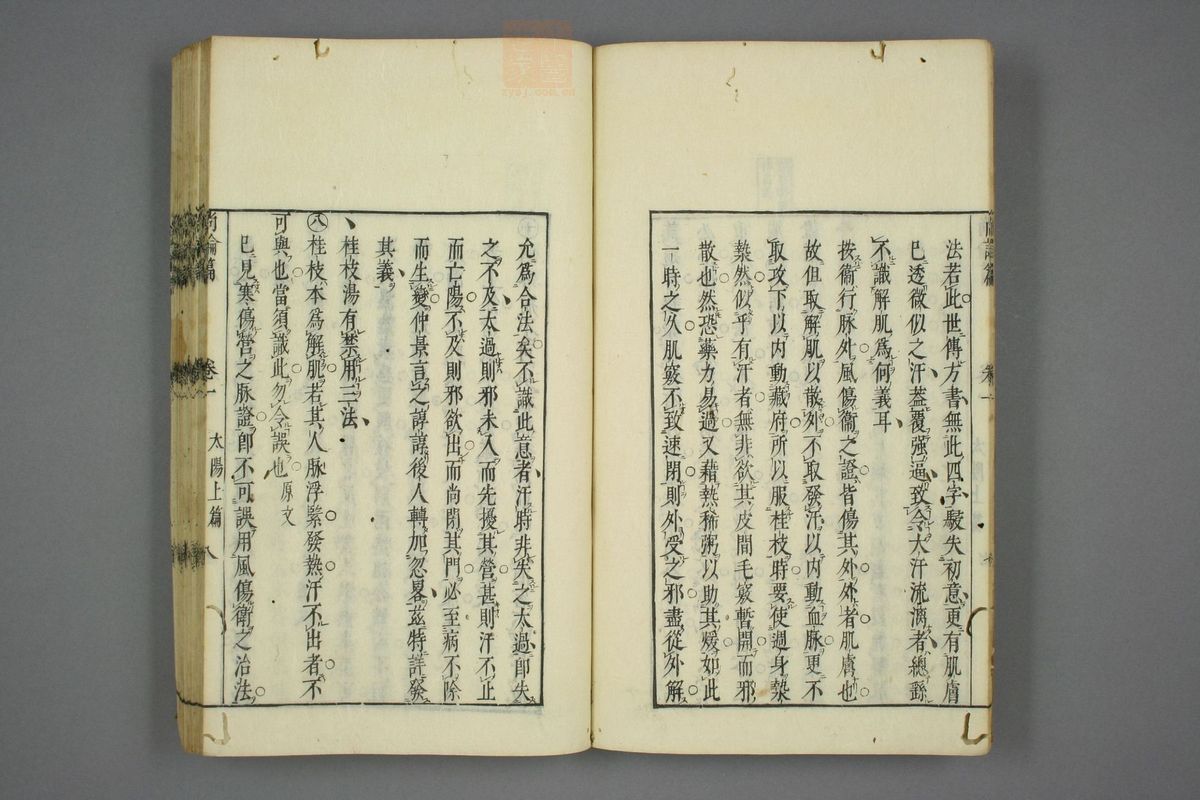 法若此世傳方書無此四字駸失初意更有肌膚
已透微似之汗蓋覆强逼致令大汗流漓者總繇
不識解肌爲何義耳
按衞行脉外風傷衞之證皆傷其外外者肌膚也
故但取解肌以散外不取發汗以内動血脉更不
取攻下以内動藏府所以服桂枝時要使遍身漐
漐然似乎有汗者無非欲其皮間毛竅暫開而邪
散也然恐藥力易過又藉熱稀粥以助其煖如此
一時之久肌竅不致速閉則外受之邪盡從外解
允爲合法矣不識此意者汗時非失之太過即失
之不及太過則邪未入而先擾其營甚則汗不止
而亡陽不及則邪欲出而尚閉其門必至病不除
而生變仲景言之諄諄後人轉加忽畧茲特詳發
其義
桂枝湯有禁用三法
㊇桂枝本爲解肌若其人脉浮緊發熱汗不出者不
可與也當須識此勿令誤也原文
已見寒傷營之脉證即不可誤用風傷衞之治法
尚論篇 卷一 太陽上篇 八